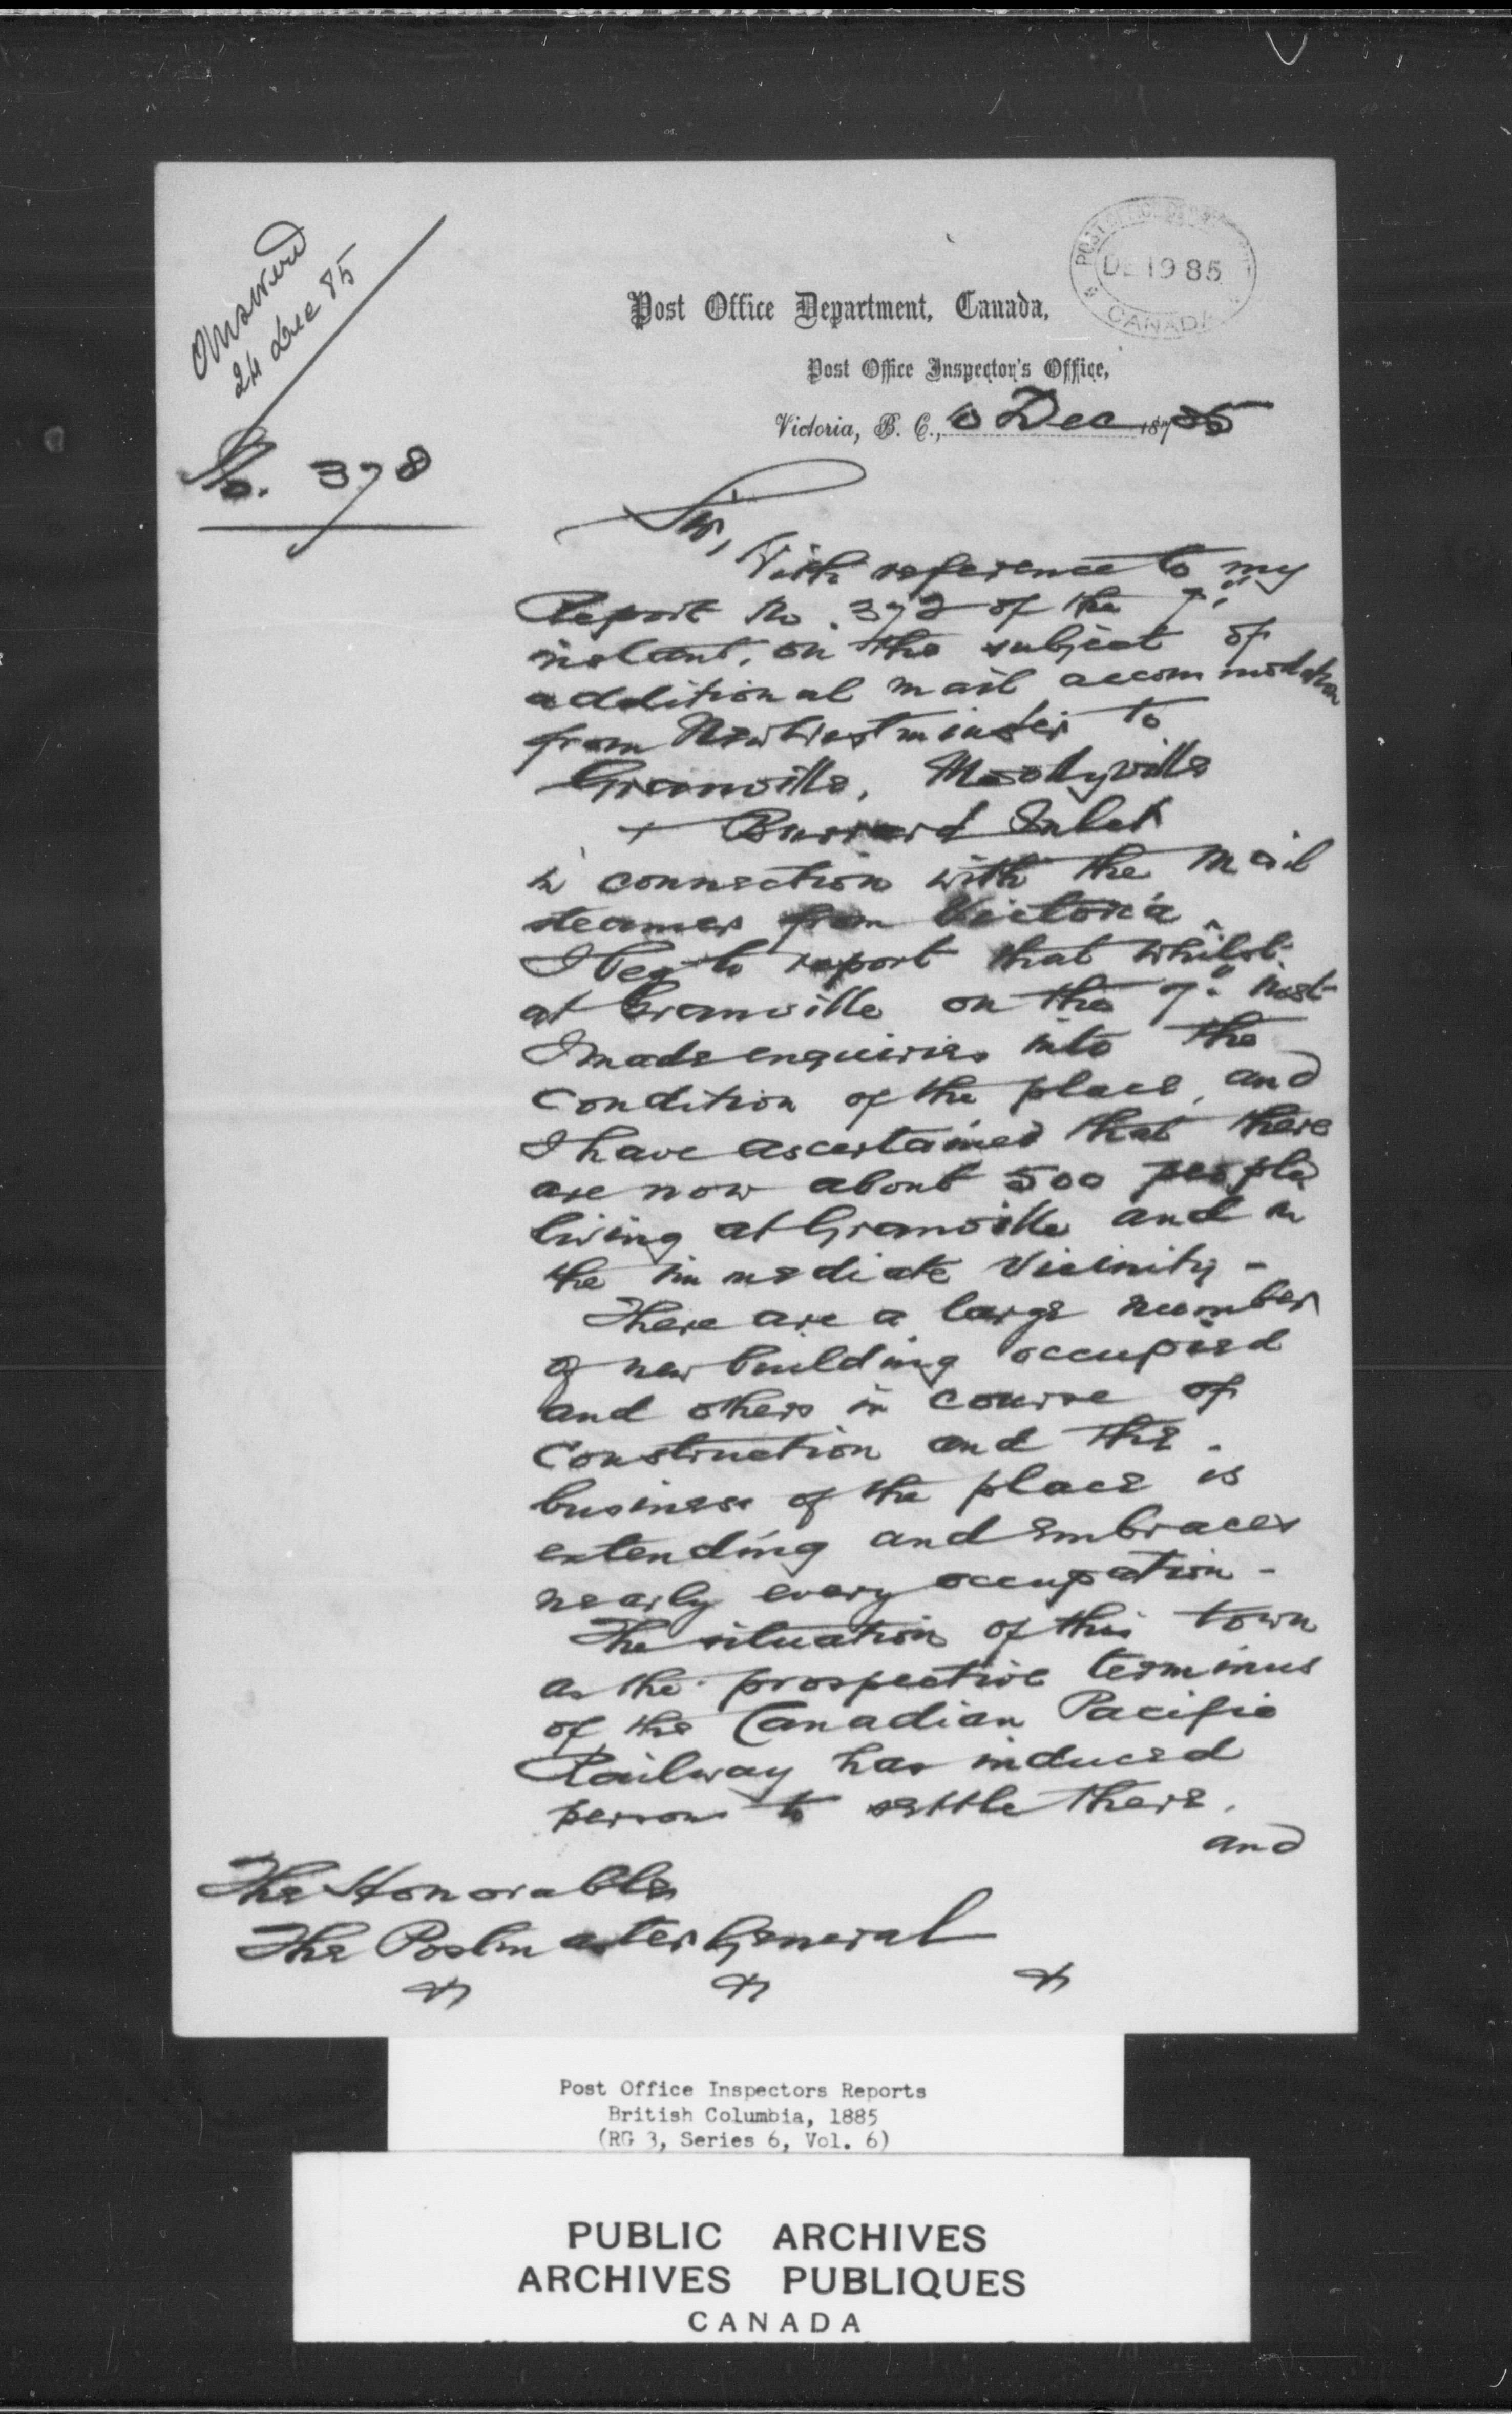 Answered
24 Dec 85
No. 378
POST OFFICE
DE 19 85
CANADA
Post Office Department, Canada,
Post Office Inspector's Office,
Victoria, B. C., 10 Dec 1885
Sir,
With reference to my
Report No. 372 of the 7"
instant, on the subject of
additional mail accommodation
from New Westminster to
Granville, Moodyville
+ Burrard Inlet
in connection with the Mail
steamer from Victoria.
I beg to report that whilst
at Granville on the 7" inst
I made enquiries into the
condition of the place, and
I have ascertained that there
are now about 500 people
living at Granville and in
the immediate vicinity -
There are a large number
of new building occupied
and others in course of
construction and the
business of the place is
extending and embraces
nearly every occupation -
The situation of this town
as the prospective terminus
of the Canadian Pacific
Railway has induced
persons to settle there.
and
The Honorable
The Postmaster General
Post Office Inspectors Reports
British Columbia, 1885
(RG 3, Series 6, Vol. 6)
PUBLIC ARCHIVES
ARCHIVES PUBLIQUES
CANADA